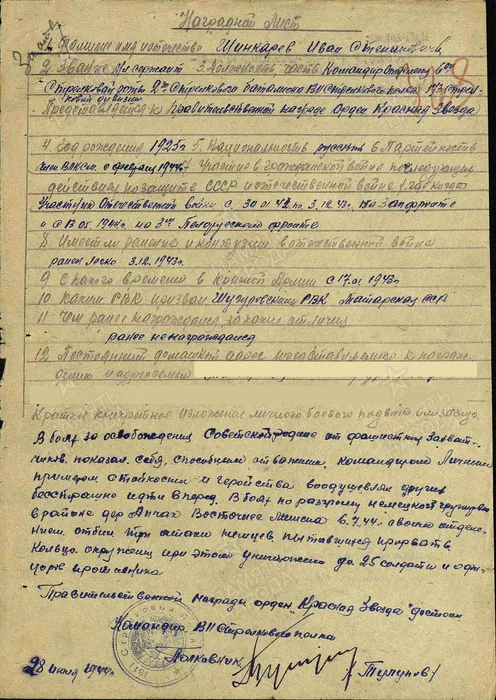 Наградной Лист
1. Фамилия имя и отчество Шункарев Иван Степанович
2. Звание Мл сержант 3. Должность, часть Командир отделения 6ой
Стрелковой роты 2го Стрелкового батальона ВП Стрелкового полка 173 Стрел-
ковой дивизии
Представляется к Правительственной награде Орден Красная Звезда
4. год рождения 1925 г. 5. Национальность русский 6. Партийность
член ВЛКСМ с февраля 1944 г 7. Участие в гражданской войне последующих
действиях по защите СССР и отечественной войне
Участник Отечественной войны с 30.01.42 по 3.12.43. на Запфронте
и с 13.05.1944г на 3ем Белорусском фронте
8. Имеет ли ранения и контузии в отечественной войне
ранен легко 3.12.1943г.
9. С какого времени в Красной Армии с 17.01.1943г
10. Каким РВК призван РВК Татарская ССР
11. Чем ранее награждался, за какие отличия
ранее не награждался
12. Постоянный домашний адрес представляемого к награж-
дению и адрес семьи
Краткое конкретное изложение личного боевого подвига или заслуг
В боях за освобождение Советской родине от фашистких захват-
чиков показал себя, способным отважным командиром Личным
примером стойкости и геройства воодушевлял других
бесстрашно идти вперед. В боях по разгрому немецкой группировки
в районе дер Апчак Восточнее Минска 6.7.44. своим отделе-
нием отбил три атаки немцев пытавшихся прорвать
кольцо окружения при этом уничтожено до 25 солдат и офи-
церов противника
Правительственной награды орден "Красная Звезда" достоин
Командир ВП Стрелкового полка
Полковник (Тулупов)
28 июля 1944г